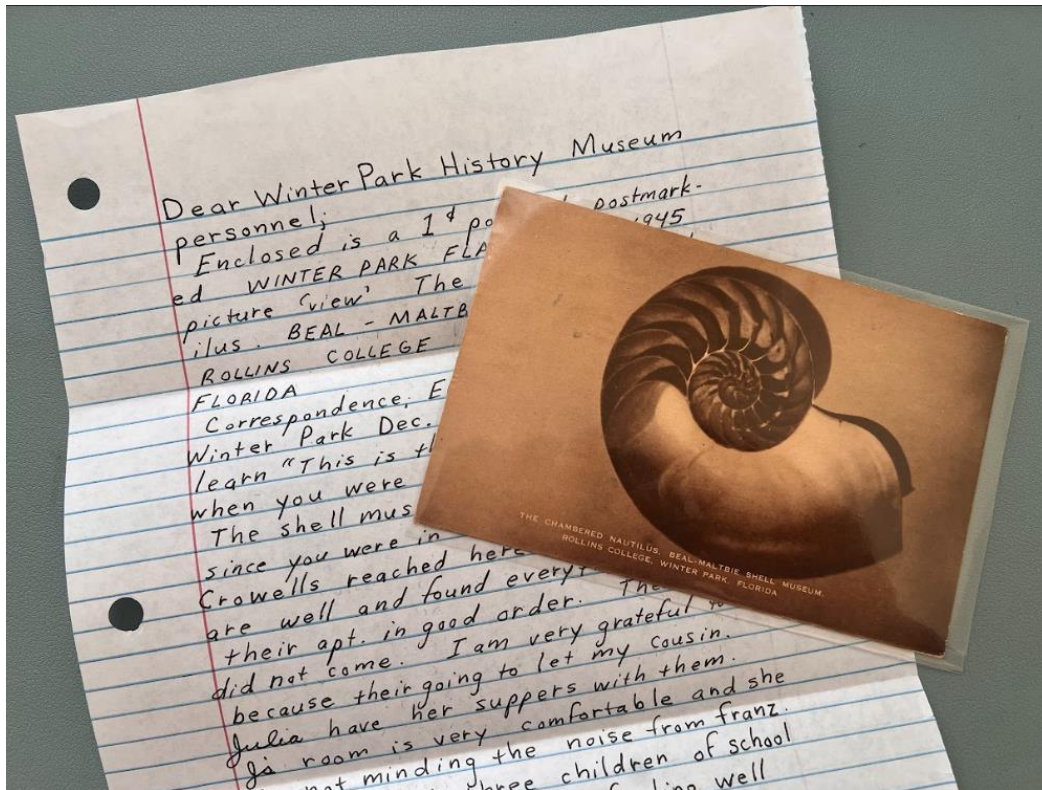 Dear Winter Park History Museum
personnel;
Enclosed is a 1¢ postmark-
ed WINTER PARK FLA 1945
picture "view" The
ilus. BEAL-MALTB
ROLLINS COLLEGE
FLORIDA
Correspondence; E
Winter Park Dec.
learn "This is
when you were
The shell mus
since you were in
Crowells reached here
are well and found
their apt. in good order.
did not come. I am very grateful
because their going to let my cousin.
Julia have her suppers with them.
room is very comfortable and she
not minding the noise from franz.
three children of school
well
THE CHAMBERED NAUTILUS, BEAL-MALTBIE SHELL MUSEUM,
ROLLINS COLLEGE, WINTER PARK, FLORIDA